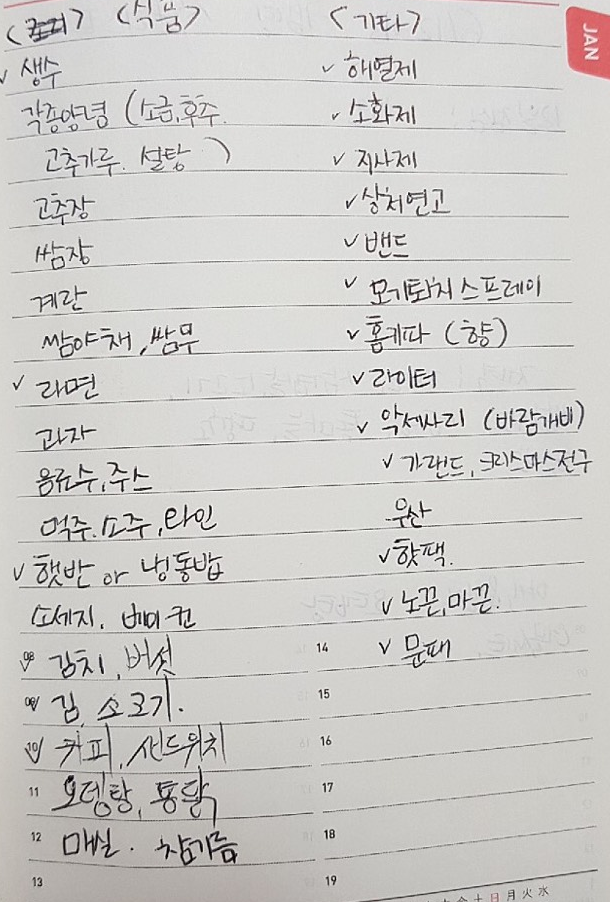 JAN
<식품>
생수
각종양념 (소금,후추.
고추가루. 설탕 )
고추장
쌈장
계란
쌈야채, 쌈무
라면
과자
음료수, 주스
맥주. 소주, 와인
햇반 or 냉동밥
소세지. 베이컨
08 김치, 버섯
09 김, 소고기.
10 커피, 샌드위치
11 오뎅탕, 통닭
12 매실. 참기름
13
<기타>
✓ 해열제
✓ 소화제
✓ 지사제
✓ 상처연고
✓ 밴드
✓ 모기퇴치 스프레이
✓ 홈키파 (향)
✓ 라이터
✓ 악세사리 (바람개비)
✓ 가랜드, 크리스마스전구
우산
✓ 핫팩.
✓ 노끈, 마끈.
14 ✓ 문패
15
16
17
18
19
土 日 月 火 水